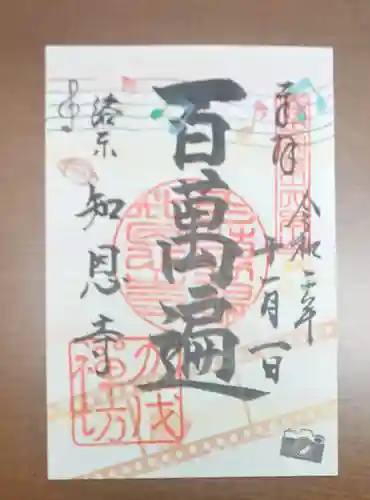 奉拝
令和二年
十一月一日
百萬遍
洛東
知恩寺